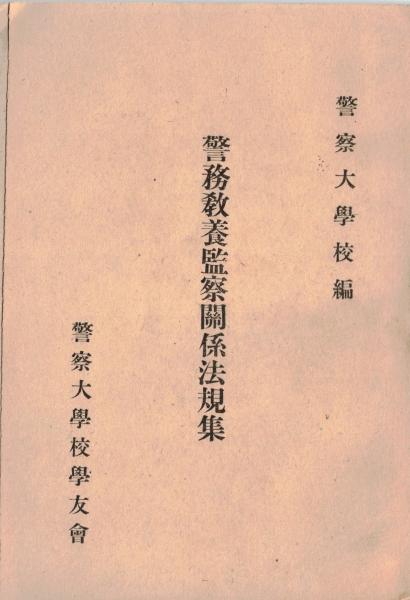 警察大學校編
警務敎養監察關係法規集
警察大學校學友會